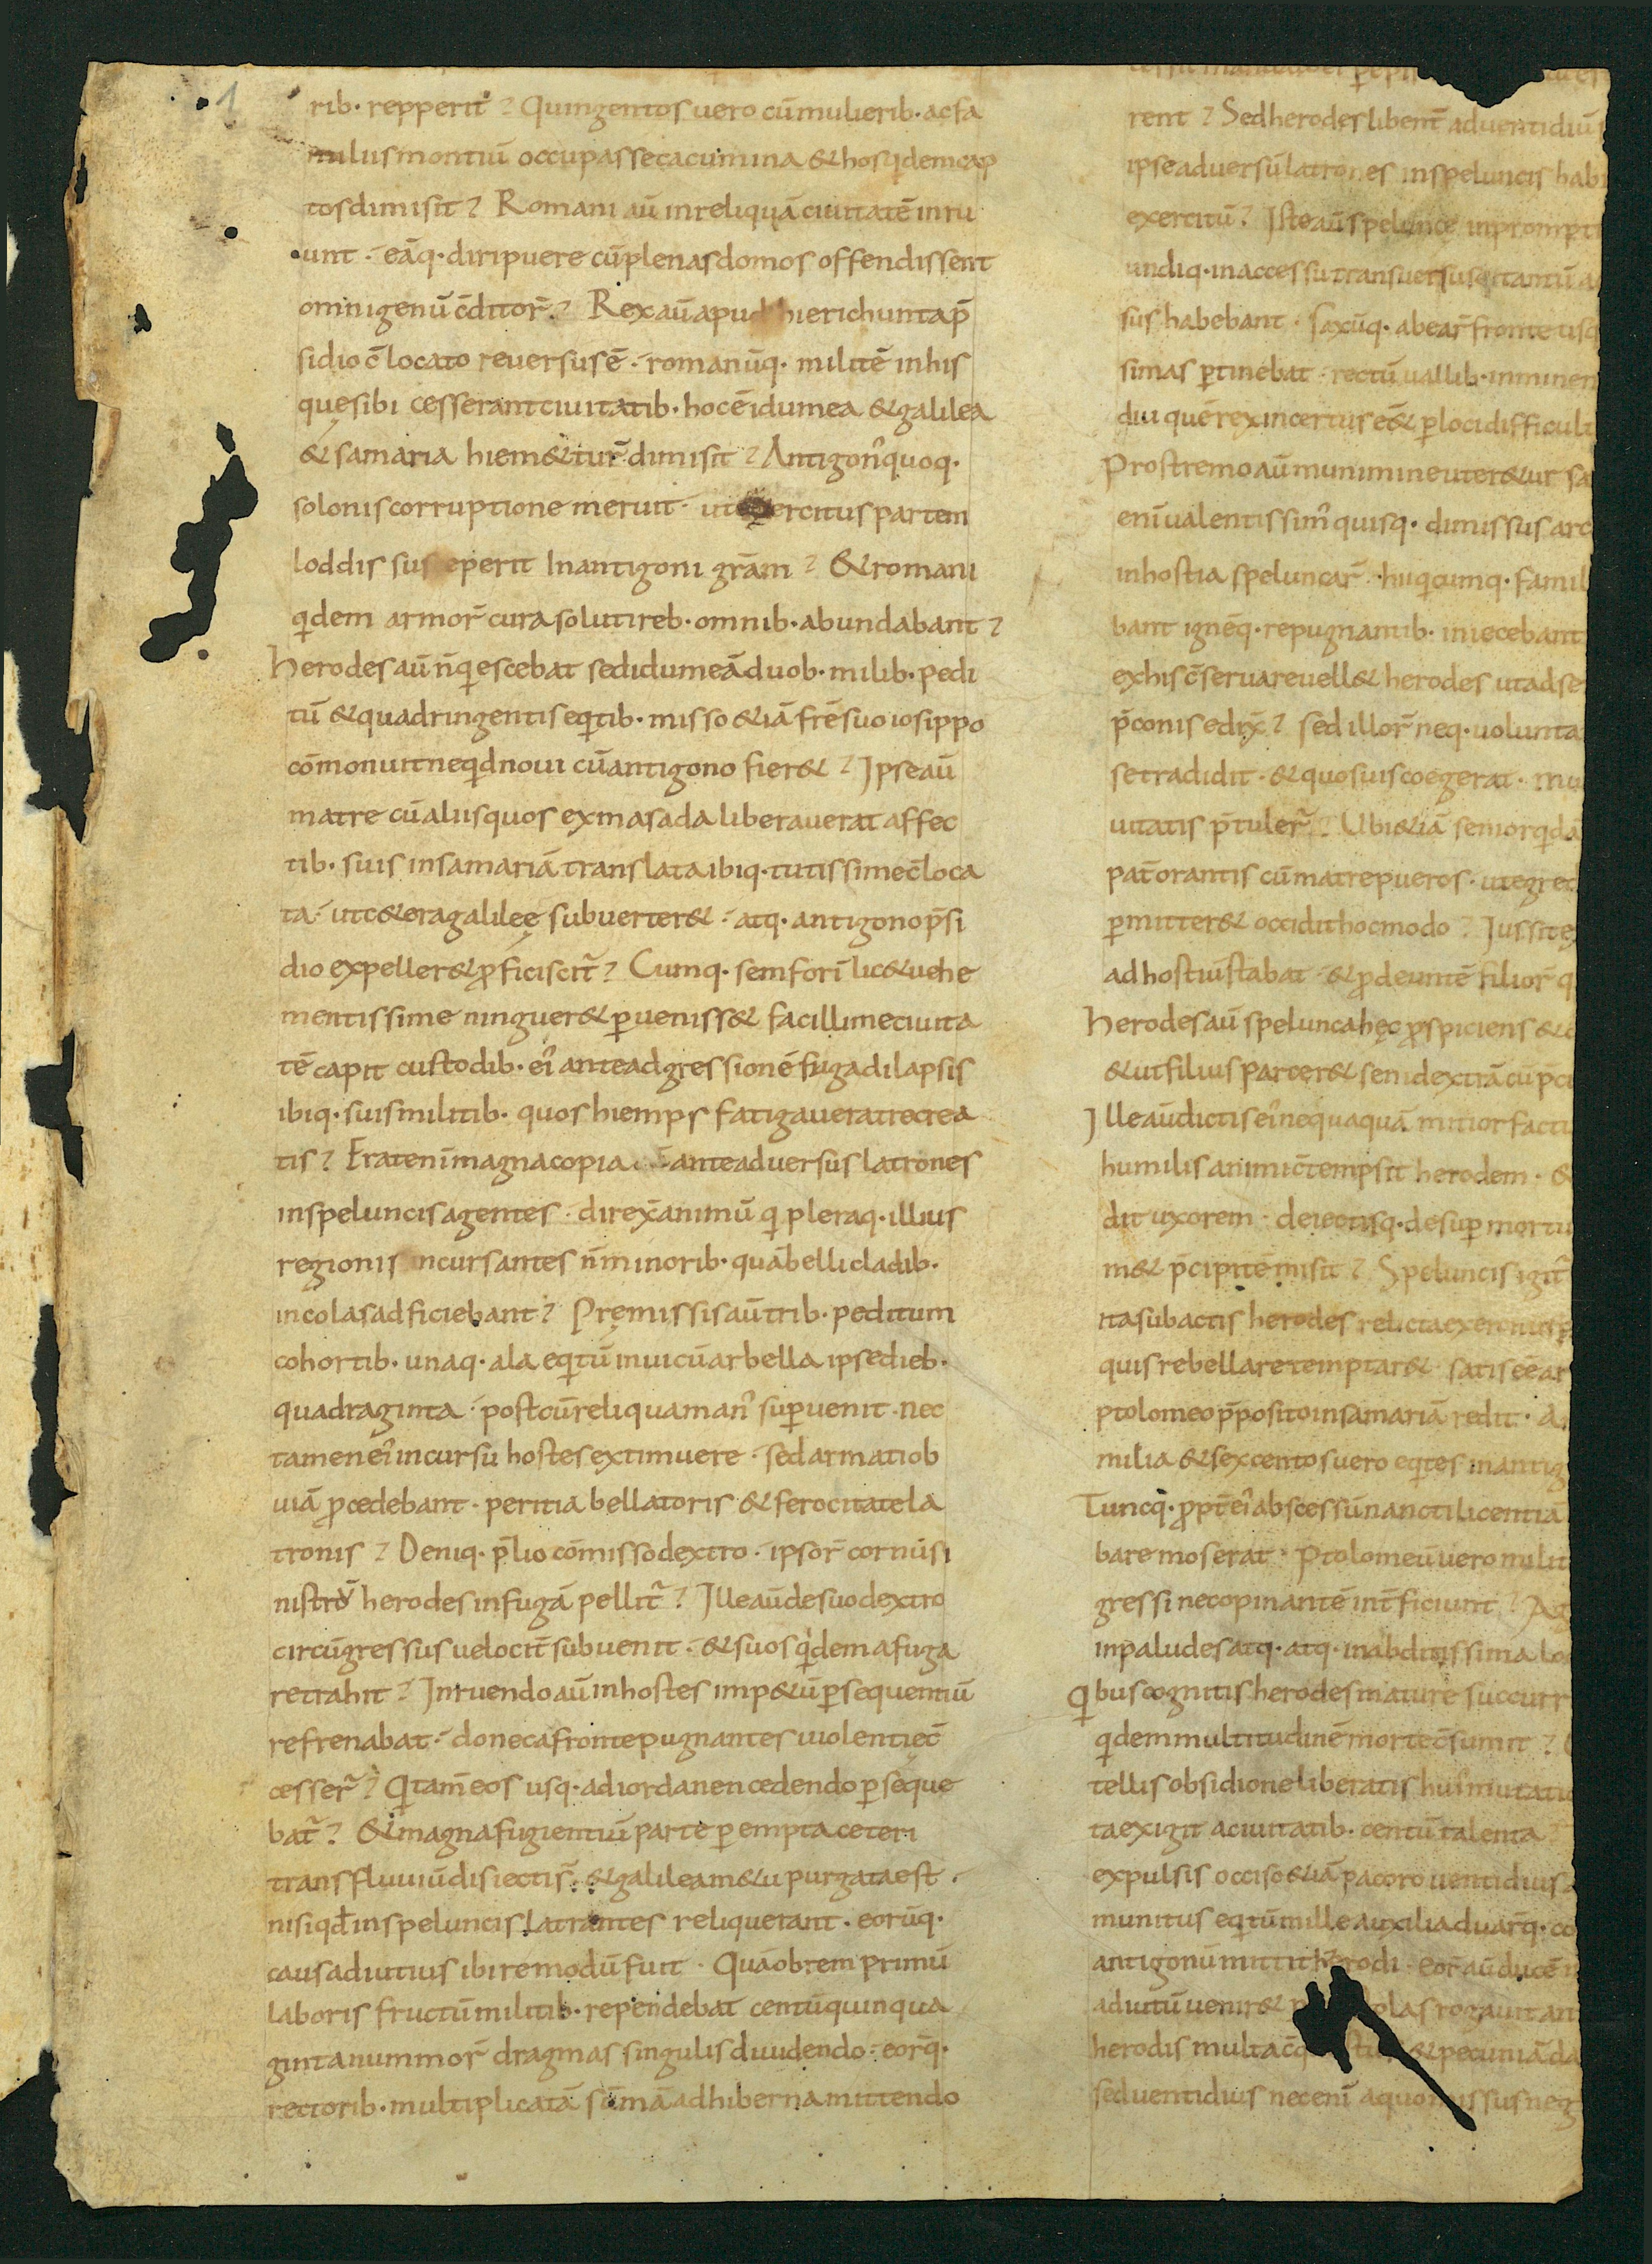 1
rib· repperit? Quingentos uero cū mulierib· ac fa
miliis montiū occupasse cacumina & hos qdem cap
tos dimisit? Romani aū in reliquā ciuitatē inru
unt· eāq· diripuere cū plenas domos offendissent
omnigenū c̄ditor̄? Rex aū apud hierichunta p̄
sidio c̄locato reuersus ē· romanūq· militē in his
quę sibi cesserant ciuitatib· hoc ē idumea & galilea
& samaria hiem&tur̄ dimisit? Antigon᾿ quoq·
solonis corruptione meruit· ut exercitus partem
loddis susceperit In antigoni gr̄am? & romani
qdem armor̄ cura soluti reb· omnib· abundabant?
herodes aū n̄ qescebat sed idumeā duob· milib· pedi
tū & quadringentis eqtib· misso &iā fr̄e suo iosippo
cōmonuit ne qd noui cū antigono fier&? Ipse aū
matre cū aliis quos ex masada liberauerat affec
tib· suis in samariā translata ibiq· tutissime c̄loca
ta· ut c&era galileę subuerter&· atq· antigono p̄si
dio expeller& ꝓficiscit̄? Cumq· semforī lic& uehe
mentissime ninguer& ꝑueniss& facillime ciuita
tē capit custodib· ei᾿ ante adgressionē fuga dilapsis
ibiq· suis militib· quos hiemps fatigauerat recrea
tis? Erat enī magna copia ante aduersus latrones
in speluncis agentes· direx̄ animū q pleraq· illius
regionis incursantes n̄ minorib· quā belli cladib·
incolas adficiebant? Pręmissis aū trib· peditum
cohortib· unaq· ala eqtū in uicū arbella ipse dieb·
quadraginta· post cū reliqua man᾿ suꝑuenit· nec
tamen ei᾿ incursu hostes extimuere· sed armati ob
uiā ꝓcedebant· peritia bellatoris & ferocitate la
tronis? Deniq· p̄lio cōmisso dextro· ipsor̄ cornū si
nistrū herodes in fugā pellit̄? Ille aū de suo dextro
circūgressus uelocit̄ subuenit· & suos qdem a fuga
retrahit? Inruendo aū in hostes imp&ū ꝑsequentiū
refrenabat· donec a fronte pugnantes uiolentię c̄
cesser̄? Qi tam̄ eos usq· ad iordanen cedendo ꝑseque
bat̄? & magna fugientiū parte ꝑempta ceteri
trans fluuiū disiectis̄· & galilea m&u purgata est·
nisi qd̄ in speluncis latrantes reliquerant· eorūq·
causa diutius ibi remodū fuit· Quāobrem primū
laboris fructū militib· rependebat centū quinqua
ginta nummor̄ dragmas singulis diuidendo· eorq̄·
rectorib· multiplicatā sūmā ad hiberna mittendo
rent? Sed herodes libent̄ ad uentidiū
ipse aduersū latrones in speluncis hab
exercitū? Iste aū spelunce in prompt
undiq· inaccessu transuersusq tantū a
sus habebant· Saxūq· ab ear̄ fronte usq
simas ꝑtinebat· rectū uallib· inminen
diu quē rex incertus e& ꝑ loci difficult
Prostremo aū munimine uter&ur sa
enī ualentissim᾿ quisq· dimissus arc
in hostia speluncar̄· hi qcumq· famil
bant ignēq· repugnantib· iniecebant
ex his c̄seruare uell& herodes ut ad se
p̄conis edix̄? sed illor̄ neq· uolunta
se tradidit· & quos uis coegerat· mu
uitatis p̄tuler̄? Ubi &iā senior qdā
pat̄ orantis cū matre pueros· ut egred
ꝑmitter& occidit hoc modo? Iussit e
ad hostiū stabat· & ꝓdeuntē filior̄ q
herodes aū spelunca hęc ꝓspiciens & c
& ut filiis parcer& seni dextrā cū p̄c
Ille aū dictis ei᾿ nequaquā mitior factu
humilis animi c̄tempsit herodem· &
dit uxorem· deiectisq· desuꝑ mortu
m& p̄cipitē misit? Speluncis igit̄
ita subactis herodes relicta exercitus p
quis rebellare temptar& satis eē ar
ptolomeo p̄posito in samariā redit· A
milia & sexcentos uero eqtes in antig
Tuncq· ꝓpt̄ ei᾿ abscessū nancti licentiā
bare mos erat· Ptolomeū uero milit
gressi necopinantē int̄ficiunt? Ag
in paludes atq· atq· in abditissima lo
Qibus cognitis herodes mature succurr
qdem multitudinē morte c̄sumit?
tellis obsidione liberatis hui᾿ mutati
ta exigit a ciuitatib· centū talenta
expulsis occiso &iā pacoro uentidius
munitus eqtū mille auxilia duarq̄· co
antigonū mittit herodi· eor̄ aū ducē
aduitū uenir& plas rogauit an
herodis multa c̄q & pecuniā da
sed uentidius nec enī a quo missus neg